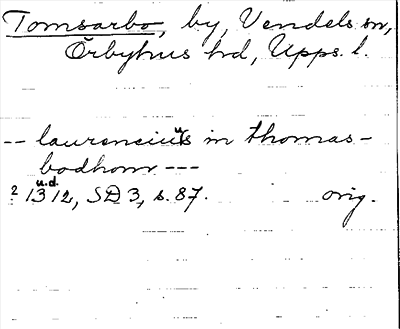 Tomsarbo, by, Vendels sn,
Örbyhus hd, Upps. l.
-- laurencius in thomas-
bodhom ---
? u.d. 1312, SD 3, s. 87. orig.